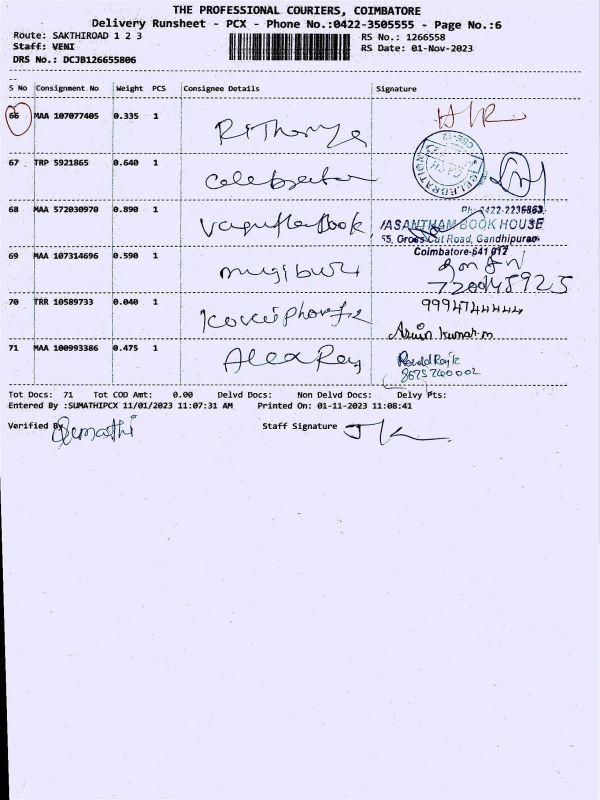 THE PROFESSIONAL COURIERS, COIMBATORE
Delivery Runsheet - PCX - Phone No.:0422-3505555 - Page No.:6
Route: SAKTHIROAD 1 2 3
RS No.: 1266558
Staff: VENI
RS Date: 01-Nov-2023
DRS No.: DCJB126655806
S No Consignment No Weight PCS Consignee Details Signature
66 MAA 107077405 0.335 1
67 TRP 5921865 0.640 1 Celebration
CELEBRATION
68 MAA 572030970 0.890 1 Book
Ph: 0422-2236863
VASANTHAM BOOK HOUSE
55, Cross Cut Road, Gandhipuram
Coimbatore-641 012
69 MAA 107314696 0.590 1 mugibur
70 TRR 10589733 0.040 1
9994744444
Arun kumar.m
71 MAA 100993386 0.475 1 Alex Roy
8675740002
Tot Docs: 71 Tot COD Amt: 0.00 Delvd Docs: Non Delvd Docs: Delvy Pts:
Entered By :SUMATHIPCX 11/01/2023 11:07:31 AM Printed On: 01-11-2023 11:08:41
Verified By Sumathi Staff Signature